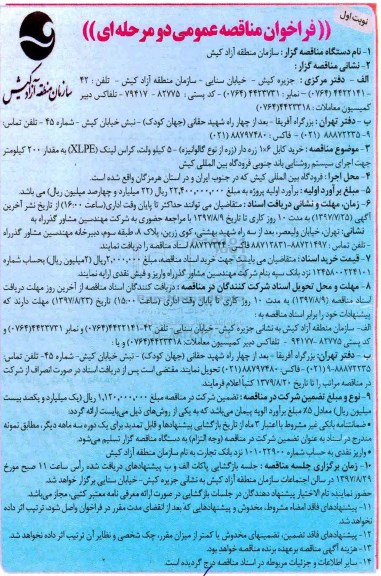 نوبت اول
((فراخوان مناقصه عمومی دو مرحله ای))
سازمان منطقه آزاد کیش
۱- نام دستگاه مناقصه گزار: سازمان منطقه آزاد کیش
۲- نشانی مناقصه گزار:
الف - دفتر مرکزی: جزیره کیش - خیابان سنایی - سازمان منطقه آزاد کیش - تلفن: ۴۲
-۴۴۲۲۱۴۱ (۰۷۶۴) - نمابر: ۴۴۲۳۷۳۱ (۰۷۶۴) - کد پستی: ۸۲۷۷۵ - ۷۹۴۱۷ - تلفاکس دبیر
کمیسیون معاملات: ۴۴۲۳۳۱۸(۰۷۶۴)
ب - دفتر تهران: بزرگراه آفریقا - بعد از چهار راه شهید حقانی (جهان کودک) - نبش خیابان کیش - شماره ۴۵ - تلفن تماس:
۹-۸۸۸۷۲۲۳۵ (۰۲۱) - فاکس: ۸۸۸۷۹۴۸۰ (۰۲۱)
۳- موضوع مناقصه: خرید کابل ۱×۶ زره دار (زره از نوع گالوانیزه) - ۵ کیلو ولت، کراس لینک (XLPE) به مقدار ۲۰۰ کیلومتر
جهت اجرای سیستم روشنایی باند جنوبی فرودگاه بین المللی کیش
۴- محل اجرا: فرودگاه بین المللی کیش که در جنوب ایران و در استان هرمزگان واقع شده است.
۵- مبلغ برآورد اولیه: برآورد اولیه پروژه به مبلغ ۲۲,۴۰۰,۰۰۰,۰۰۰ ریال (۲۲ میلیارد و چهارصد میلیون ریال) می باشد.
۶- زمان، مهلت و نشانی دریافت اسناد: متقاضیان می توانند حداکثر تا پایان وقت اداری(ساعت ۱۶:۰۰) از تاریخ نشر آخرین
آگهی (۱۳۹۷/۷/۲۵) به مدت ۱۰ روز کاری تا تاریخ ۱۳۹۷/۸/۹ با مراجعه حضوری به شرکت مهندسین مشاور گذرراه به
نشانی: تهران، خیابان ولیعصر، بعد از سه راه شهید بهشتی، کوی زرین، پلاک ۸، طبقه سوم، دبیرخانه مهندسین مشاور گذرراه
تلفن تماس: ۸۸۷۲۱۴۹۷-۸۸۷۱۲۸۳۱ فاکس: ۸۸۷۲۷۳۴۴ اسناد مناقصه را دریافت نمایند.
۷- قیمت خرید اسناد: متقاضیان می بایست جهت خرید اسناد مناقصه، مبلغ ۲,۰۰۰,۰۰۰ ریال (۲میلیون ریال) بحساب شماره
۱۲۴۵۸۰۰۲۲۴۱۰۱ نزد بانک سپه بنام شرکت مهندسین مشاور گذرراه واریز و فیش نقدی ارایه نمایند.
۸- مهلت و محل تحویل اسناد شرکت کنندگان در مناقصه: دریافت کنندگان اسناد مناقصه از آخرین روز مهلت دریافت
اسناد مناقصه (۱۳۹۷/۸/۹) به مدت ۱۰ روز کاری تا پایان وقت اداری (ساعت ۱۵:۰۰) تاریخ (۱۳۹۷/۸/۲۳) مهلت دارند که
پیشنهادات خود را برابر اسناد مناقصه به:
الف - سازمان منطقه آزاد کیش به نشانی جزیره کیش- خیابان سنایی- تلفن ۴۲-۴۴۲۲۱۴۱(۰۷۶۴) و نمابر ۴۴۲۳۷۳۱(۰۷۶۴) و
کد پستی ۸۲۷۷۵-۷۹۴۱۷ - تلفاکس دبیر کمیسیون معاملات: ۴۴۲۳۳۱۸(۰۷۶۴) و یا:
ب - دفتر تهران: بزرگراه آفریقا - بعد از چهار راه شهید حقانی (جهان کودک) - نبش خیابان کیش- شماره ۴۵- تلفن تماس:
۹-۸۸۸۷۲۲۳۵(۰۲۱) فاکس: ۸۸۸۷۹۴۸۰(۰۲۱) تحویل نمایند. مقتضی است پس از دریافت اسناد در صورت انصراف از شرکت
در مناقصه مراتب را تا تاریخ ۱۳۹۷/۸/۲۰ کتباً اعلام فرمایند.
۹- نوع و مبلغ تضمین شرکت در مناقصه: تضمین شرکت در مناقصه مبلغ ۱,۱۲۰,۰۰۰,۰۰۰ ریال (یک میلیارد و یکصد بیست
میلیون ریال) معادل ۵٪ مبلغ برآورد الویه پیمان می باشد که به یکی از روش های ذیل می بایست ارائه گردد:
•ضمانتنامه بانکی غیر مشروط با اعتبار ۳ ماه از تاریخ بازگشایی پیشنهادها و قابل تمدید برای یک دوره سه ماهه دیگر، مطابق نمونه
مندرج در اسناد به عنوان تضمین شرکت در مناقصه (وجه التزام) به دستگاه مناقصه گزار تسلیم می شود.
•واریز نقدی به حساب شماره ۱۰۱۰۲۲۹۰۰ نزد بانک تجارت به نام سازمان منطقه آزاد کیش
۱۰- زمان برگزاری جلسه مناقصه: جلسه بازگشایی پاکات الف و ب پیشنهادهای دریافت شده رأس ساعت ۱۱ صبح مورخ
۱۳۹۷/۸/۲۹ در سالن اجتماعات سازمان منطقه آزاد کیش به نشانی جزیره کیش- خیابان سنایی برگزار خواهد شد.
حضور نماینده تام الاختیار پیشنهاد دهندگان در جلسات بازگشایی در صورت ارائه معرفی نامه معتبر کتبی، مجاز می باشد.
۱۱- پیشنهادهای فاقد امضاء، مشروط، مخدوش و پیشنهادهایی که بعد از انقضای مدت مقرر در فراخوان واصل شود، ترتیب اثر داده
نخواهد شد.
۱۲- پیشنهادهای فاقد تضمین، تضمینهای مخدوش یا کمتر از میزان مقرر، چک شخصی و نظایر آن ترتیب اثر داده نخواهد شد.
۱۳- هزینه آگهی مناقصه برعهده برنده مناقصه خواهد بود.
۱۴- سایر اطلاعات و جزئیات مربوطه در اسناد مناقصه درج گردیده است